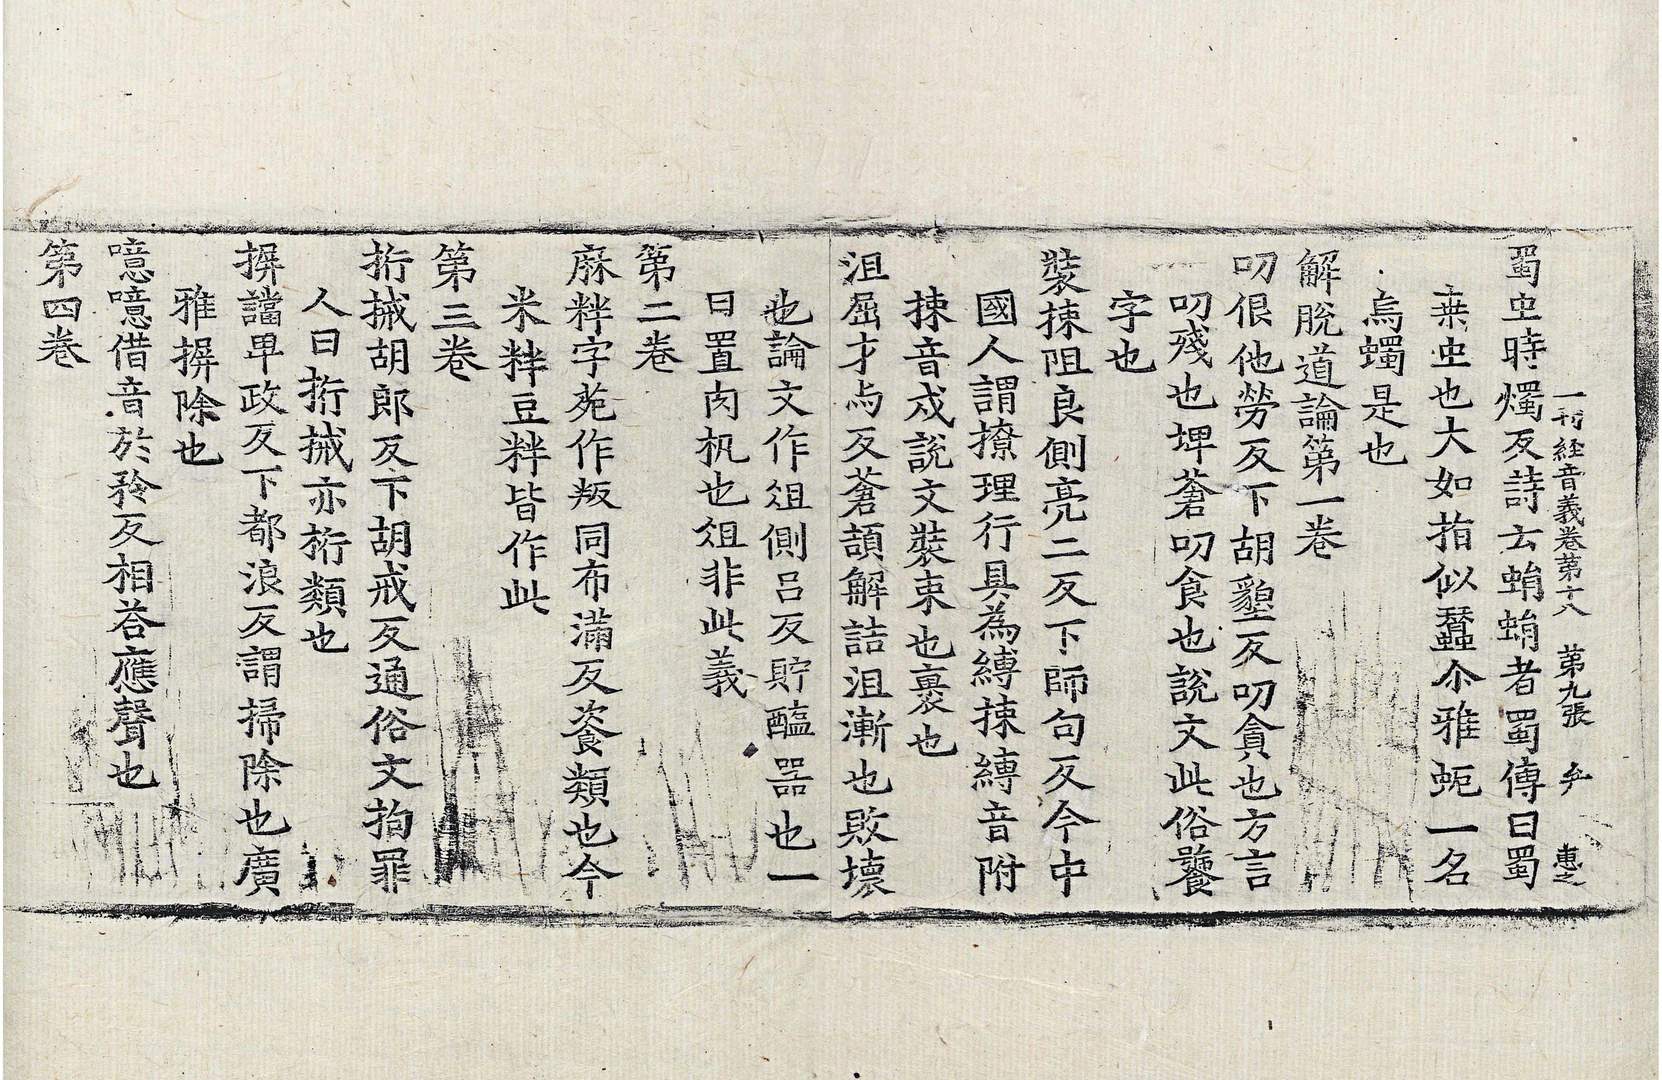 蜀虫時燭反詩云蛸蛸者蜀傳曰蜀
一切經音義卷第十八 第九張 弁 惠之
桒虫也大如指似蠶尒雅蚅一名
烏蠋是也
解脫道論第一卷
叨佷他勞反下胡墾反叨貪也方言
叨殘也埤蒼叨食也說文此俗饕
字也
裝揀阻良側亮二反下師句反今中
國人謂撩理行具為縛揀縛音附
揀音戍說文裝束也裹也
沮屈才与反蒼頡解詁沮漸也敗壞
也論文作俎側呂反貯醢器也一
曰置肉机也俎非此義
第二卷
麻粰字苑作䉽同布滿反餈類也今
米粰豆粰皆作此
第三卷
桁械胡郎反下胡戒反通俗文拘罪
人曰桁械亦桁類也
摒譡畢政反下都浪反謂掃除也廣
雅摒除也
噫噫借音於矜反相荅應聲也
第四卷